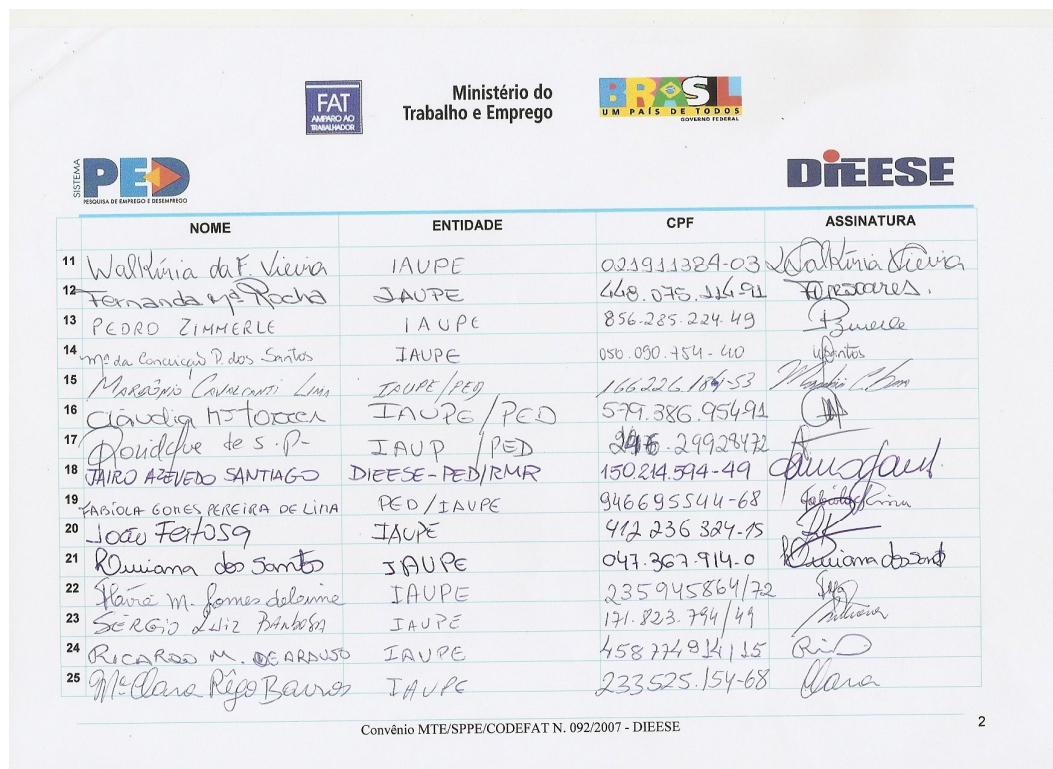 FAT
AMPARO AO
TRABALHADOR
Ministério do
Trabalho e Emprego
BRASIL
UM PAÍS DE TODOS
GOVERNO FEDERAL
SISTEMA
PED
PESQUISA DE EMPREGO E DESEMPREGO
DIEESE
NOME ENTIDADE CPF ASSINATURA
11 Walkínia da F. Vieira IAUPE 021911384-03 Walkínia Vieira
12 Fernanda Mª Rocha IAUPE 448.075.114-91
13 PEDRO ZIMMERLE IAUPE 856.285.224.49
14 Mª da Conceição P. dos Santos IAUPE 050.090.754-40
15 MARCÔNIO CAVALCANTI LIMA IAUPE/PED
16 Cláudia IAUPE/PED 579.386.954-91
17 IAUP/PED
18 JAIRO AZEVEDO SANTIAGO DIEESE-PED/RMR 150.214.594-49
19 FABÍOLA GOMES PEREIRA DE LIMA PED/IAUPE 946695544-68
20 João Feitosa IAUPE 412 236 324-15
21 dos Santos IAUPE 047.367.914-0
22 M. Gomes IAUPE 235945864/72
23 SÉRGIO LUIZ BARBOSA IAUPE 171.823.794/49
24 RICARDO M. DE ARAUJO IAUPE 458774914/15
25 Mª Clara Rêgo Barros IAUPE 233525.154-68 Clara
Convênio MTE/SPPE/CODEFAT N. 092/2007 - DIEESE
2